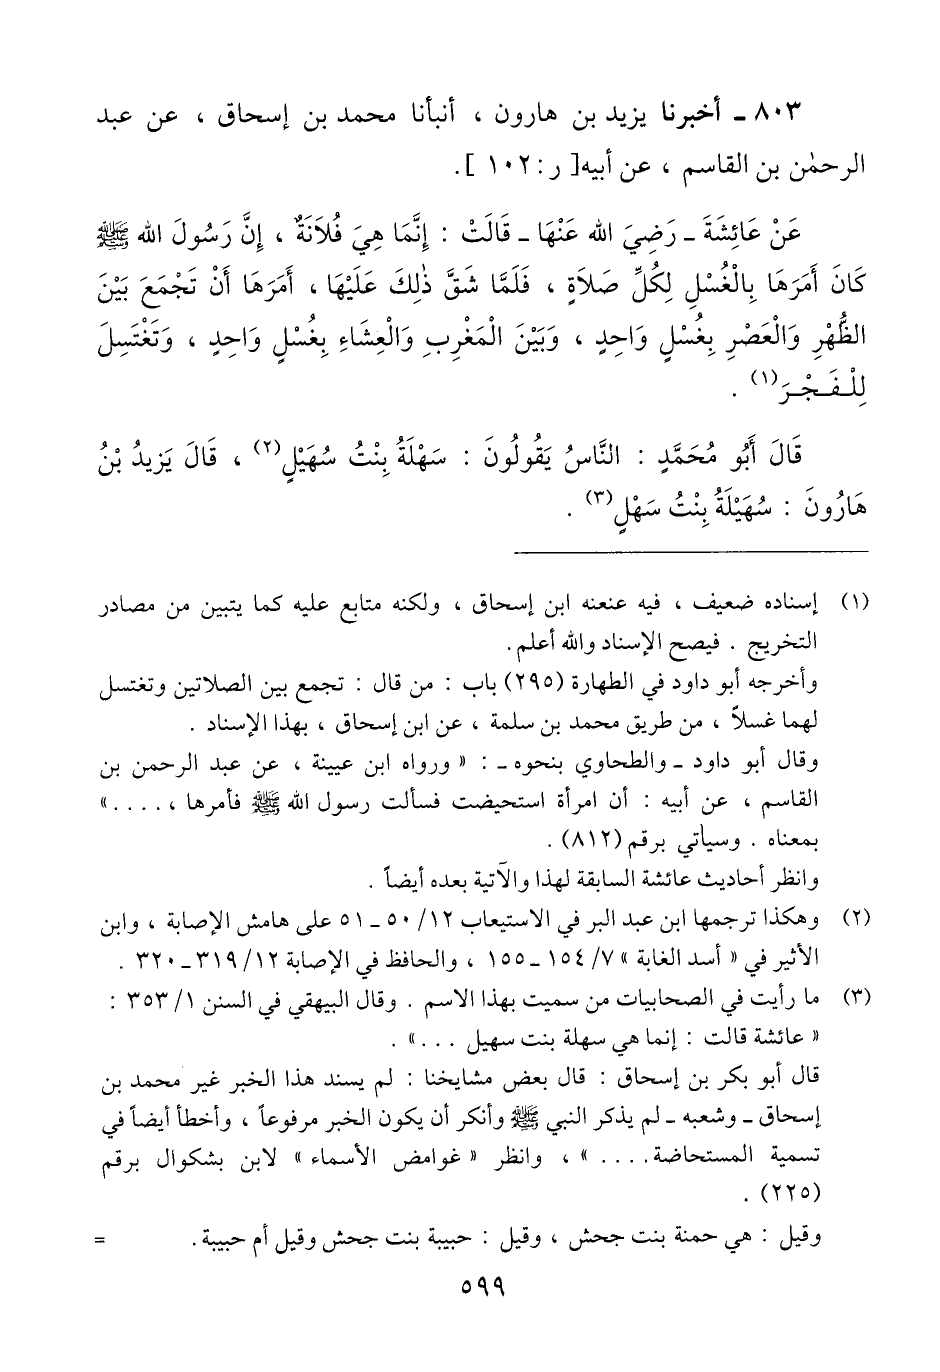 ٨٠٣ ـ أخبرنا يزيد بن هارون ، أنبأنا محمد بن إسحاق ، عن عبد
الرحمٰن بن القاسم ، عن أبيه[ ر : ١٠٢ ].
عَنْ عَائِشَةَ ـ رَضِيَ الله عَنْهَا ـ قَالَتْ : إِنَّمَا هِيَ فُلَانَةٌ ، إِنَّ رَسُولَ الله ﷺ
كَانَ أَمَرَهَا بِالْغُسْلِ لِكُلِّ صَلَاةٍ ، فَلَمَّا شَقَّ ذٰلِكَ عَلَيْهَا ، أَمَرَهَا أَنْ تَجْمَعَ بَيْنَ
الظُّهْرِ وَالْعَصْرِ بِغُسْلٍ وَاحِدٍ ، وَبَيْنَ الْمَغْرِبِ وَالْعِشَاءِ بِغُسْلٍ وَاحِدٍ ، وَتَغْتَسِلَ
لِلْـفَـجْـرَ(١) .
قَالَ أَبُو مُحَمَّدٍ : النَّاسُ يَقُولُونَ : سَهْلَةُ بِنْتُ سُهَيْلٍ(٢) ، قَالَ يَزِيدُ بْنُ
هَارُونَ : سُهَيْلَةُ بِنْتُ سَهْلٍ(٣) .
(١) إسناده ضعيف ، فيه عنعنه ابن إسحاق ، ولكنه متابع عليه كما يتبين من مصادر
التخريج . فيصح الإسناد والله أعلم.
وأخرجه أبو داود في الطهارة (٢٩٥) باب : من قال : تجمع بين الصلاتين وتغتسل
لهما غسلاً ، من طريق محمد بن سلمة ، عن ابن إسحاق ، بهذا الإسناد .
وقال أبو داود ـ والطحاوي بنحوه ـ : « ورواه ابن عيينة ، عن عبد الرحمن بن
القاسم ، عن أبيه : أن امرأة استحيضت فسألت رسول الله ﷺ فأمرها ، .... »
بمعناه . وسيأتي برقم (٨١٢) .
وانظر أحاديث عائشة السابقة لهذا والآتية بعده أيضاً .
(٢) وهكذا ترجمها ابن عبد البر في الاستيعاب ١٢/ ٥٠ ـ ٥١ على هامش الإصابة ، وابن
الأثير في « أسد الغابة » ٧/ ١٥٤ ـ ١٥٥ ، والحافظ في الإصابة ١٢/ ٣١٩ ـ ٣٢٠ .
(٣) ما رأيت في الصحابيات من سميت بهذا الاسم . وقال البيهقي في السنن ١/ ٣٥٣ :
« عائشة قالت : إنما هي سهلة بنت سهيل ... » .
قال أبو بكر بن إسحاق : قال بعض مشايخنا : لم يسند هذا الخبر غير محمد بن
إسحاق ـ وشعبه ـ لم يذكر النبي ﷺ وأنكر أن يكون الخبر مرفوعاً ، وأخطأ أيضاً في
تسمية المستحاضة .... » ، وانظر « غوامض الأسماء » لابن بشكوال برقم
(٢٢٥) .
وقيل : هي حمنة بنت جحش ، وقيل : حبيبة بنت جحش وقيل أم حبيبة. =
٥٩٩